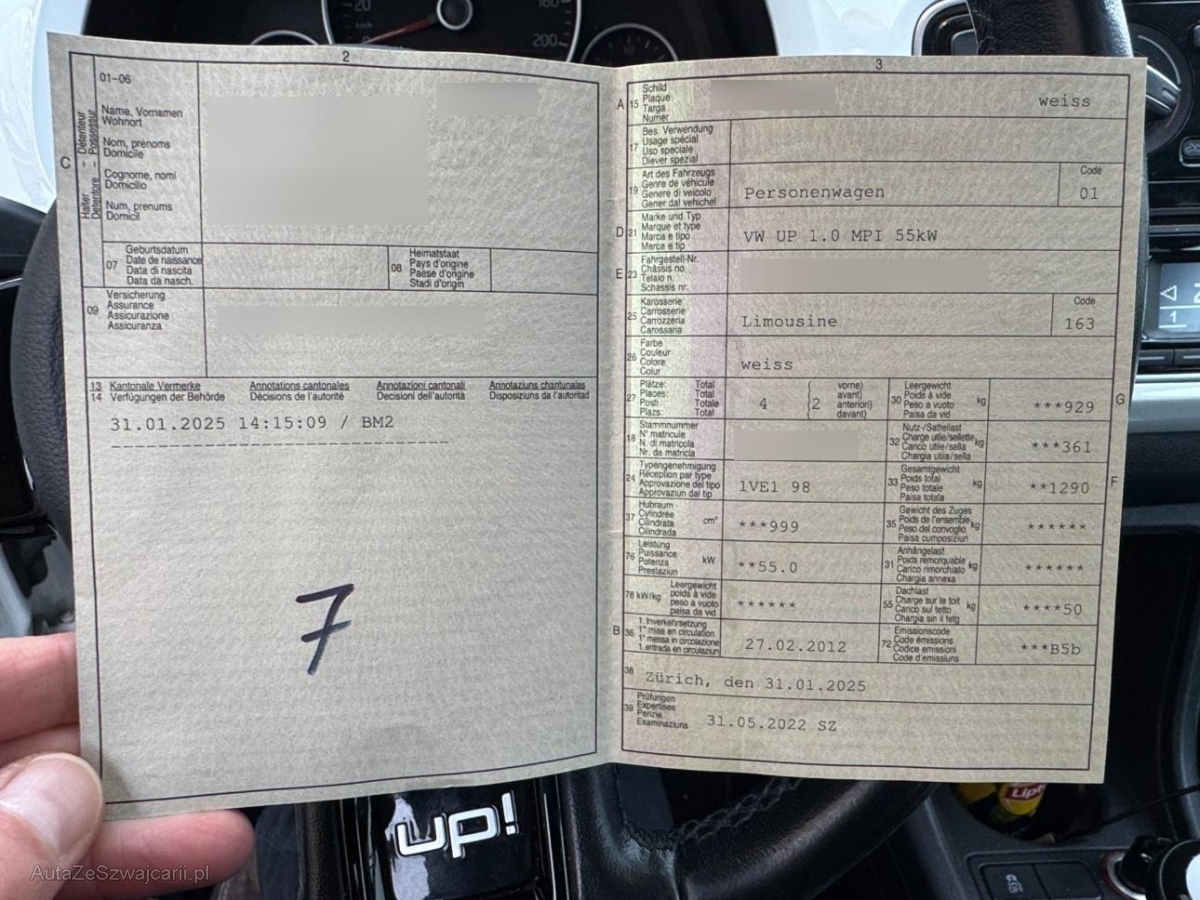 20
km/h
180
200
2
01-06
C
Halter - Détenteur
Detentore - Possessur
Name, Vornamen
Wohnort
Nom, prénoms
Domicile
Cognome, nomi
Domicilio
Num, prenums
Domicil
07
Geburtsdatum
Date de naissance
Data di nascita
Data da nasch.
08
Heimatstaat
Pays d'origine
Paese d'origine
Stadi d'origin
09
Versicherung
Assurance
Assicurazione
Assicuranza
13 Kantonale Vermerke Annotations cantonales Annotazioni cantonali Annotaziuns chantunalas
14 Verfügungen der Behörde Décisions de l'autorité Decisioni dell'autorità Disposiziuns da l'autoritad
31.01.2025 14:15:09 / BM2
--------------------------------
7
3
A 15
Schild
Plaque
Targa
Numer
weiss
17
Bes. Verwendung
Usage spécial
Uso speciale
Diever spezial
19
Art des Fahrzeugs
Genre de véhicule
Genere di veicolo
Gener dal vehichel
Personenwagen
Code
01
D 21
Marke und Typ
Marque et type
Marca e tipo
Marca e tip
VW UP 1.0 MPI 55kW
E 23
Fahrgestell-Nr.
Châssis no
Telaio n.
Schassis nr.
25
Karosserie
Carrosserie
Carrozzeria
Carossaria
Limousine
Code
163
26
Farbe
Couleur
Colore
Colur
weiss
27
Plätze: Total
Places: Total
Posti: Totale
Plazs: Total
4
(2
vorne)
avant)
anteriori)
davant)
30
Leergewicht
Poids à vide
Peso a vuoto
Paisa da vid
kg
***929
G
18
Stammnummer
N° matricule
N. di matricola
Nr. da matricla
32
Nutz-/Sattellast
Charge utile/sellette
Carico utile/sella
Chargia utila/sella
kg
***361
24
Typengenehmigung
Réception par type
Approvazione del tipo
Approvaziun dal tip
1VE1 98
33
Gesamtgewicht
Poids total
Peso totale
Paisa totala
kg
**1290
F
37
Hubraum
Cylindrée
Cilindrata
Cilindrada
cm³
***999
35
Gewicht des Zuges
Poids de l'ensemble
Peso del convoglio
Paisa cumposiziun
kg
******
76
Leistung
Puissance
Potenza
Prestaziun
kW
**55.0
31
Anhängelast
Poids remorquable
Carico rimorchiato
Chargia annexa
kg
******
78 kW/kg
Leergewicht
poids à vide
peso a vuoto
paisa da vid
******
55
Dachlast
Charge sur le toit
Carico sul tetto
Chargia sin il tetg
kg
****50
B 36
1. Inverkehrsetzung
1re mise en circulation
1a messa in circolazione
1. entrada en circulaziun
27.02.2012
72
Emissionscode
Code émissions
Codice emissioni
Code d'emissiuns
***B5b
38
Zürich, den 31.01.2025
39
Prüfungen
Expertises
Perizie
Examinaziuns
31.05.2022 SZ
up!
Lipt
1
AutaZeSzwajcarii.pl